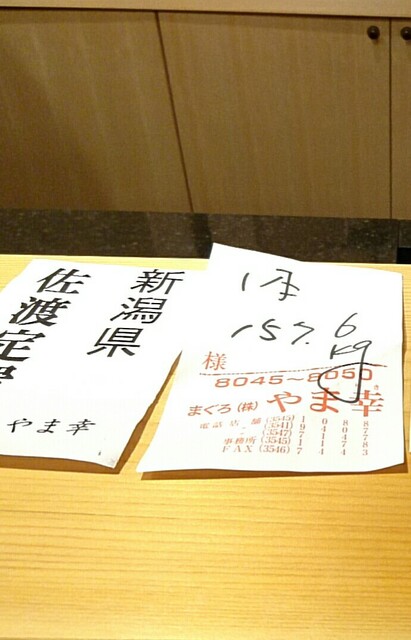 新潟県
佐渡定置
やま幸
1本
157.6
kg
様
8045～8050
まぐろ（株）やま幸
電話店舗（3545）1088
（3541）9407
〃（3547）7147
事務所（3545）1178
FAX（3546）7443